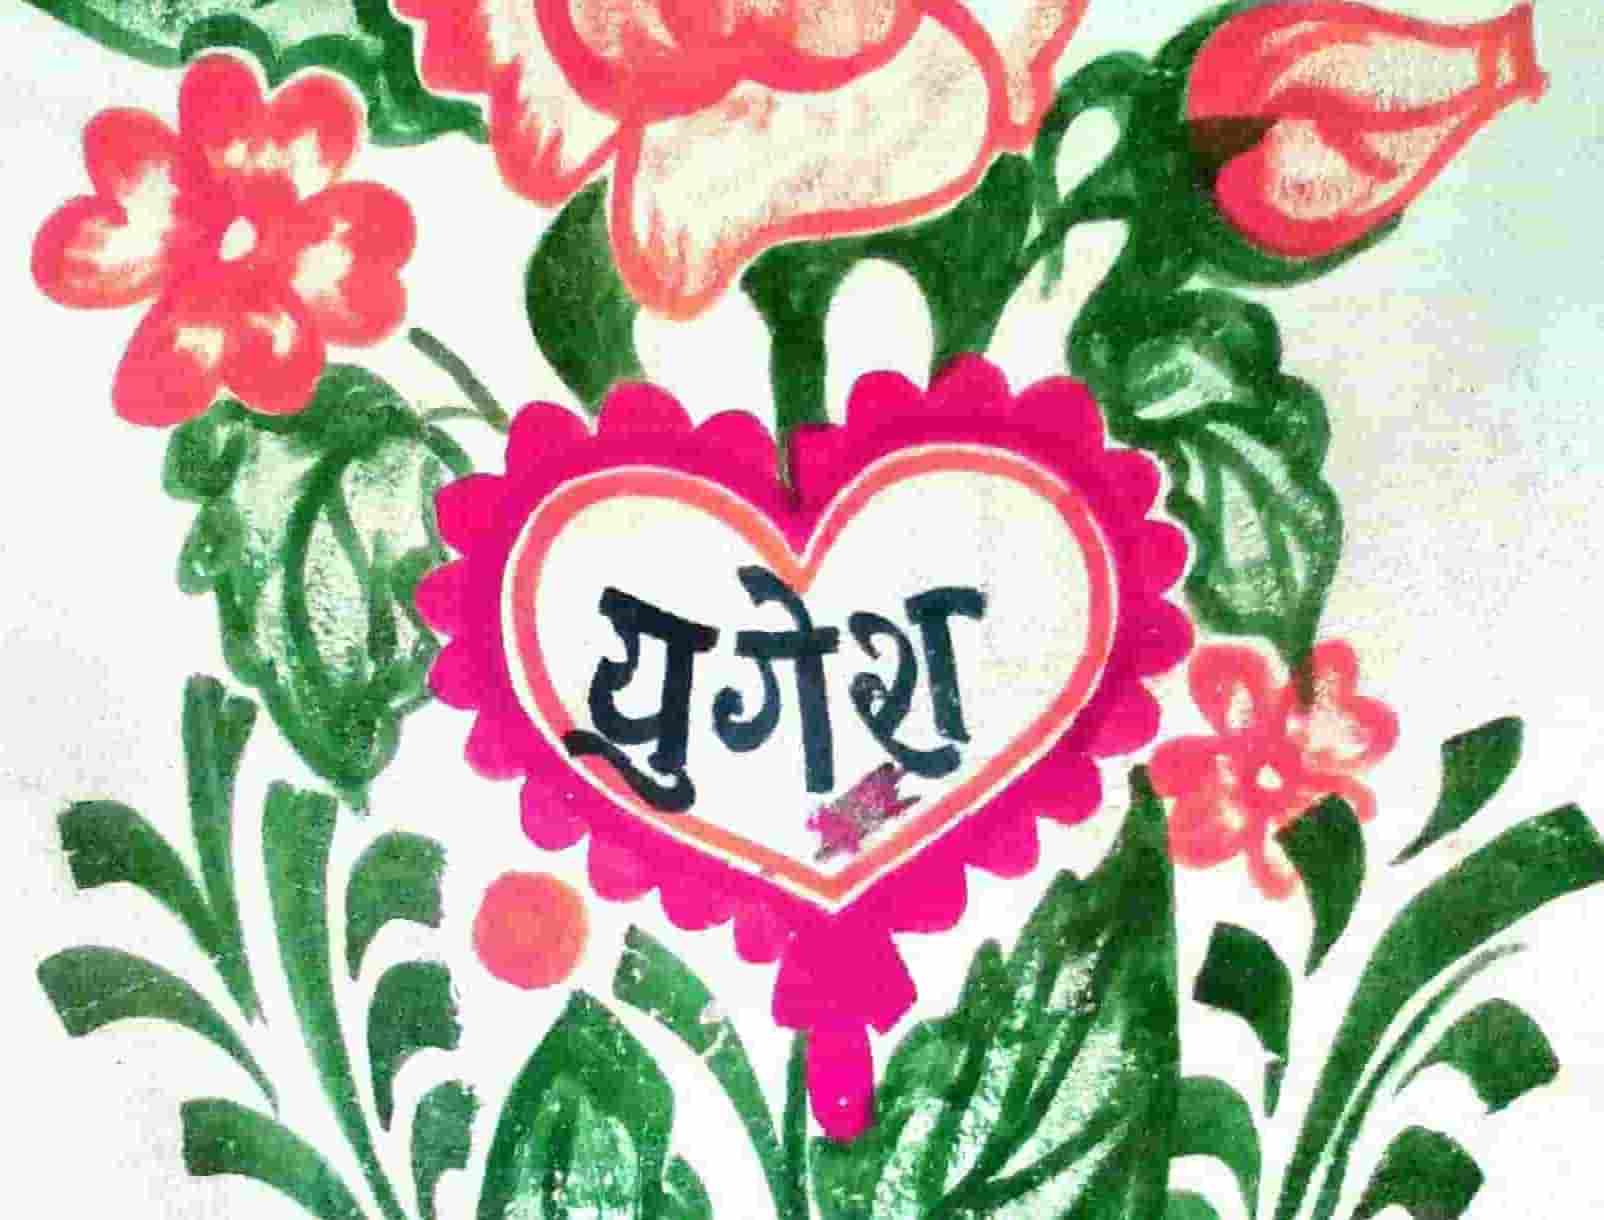 युगेश